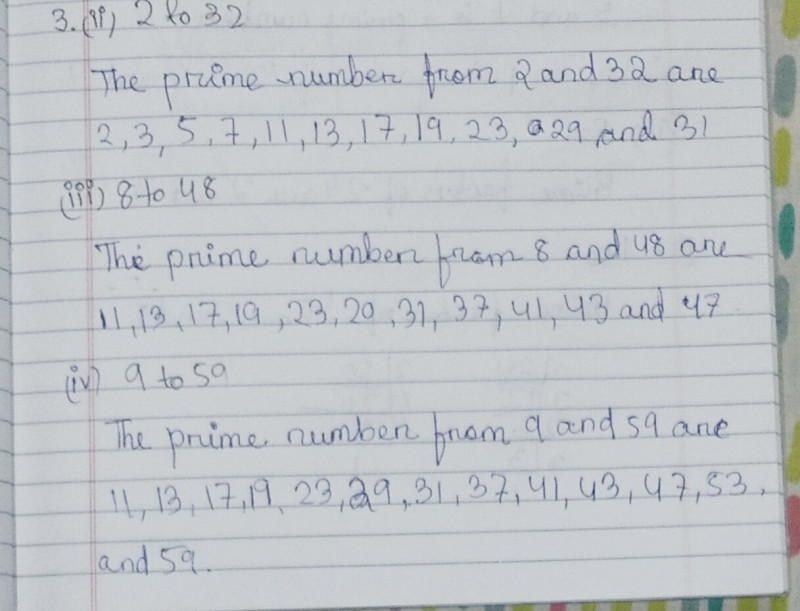 3. (ii) 2 to 32
The prime number from 2 and 32 are
2, 3, 5, 7, 11, 13, 17, 19, 23, 29 and 31
(iii) 8 to 48
The prime number from 8 and 48 are
11, 13, 17, 19, 23, 29, 31, 37, 41, 43 and 47
(iv) 9 to 59
The prime number from 9 and 59 are
11, 13, 17, 19, 23, 29, 31, 37, 41, 43, 47, 53,
and 59.